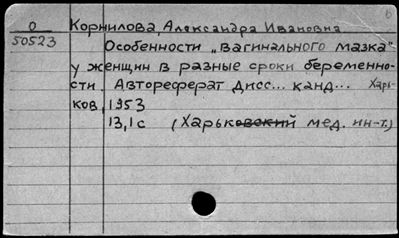 б
О Корнилова, Александра Ивановна
50523 Особенности „вагинального мазка"
у женщин в разные сроки беременно-
сти. Автореферат дисс... канд... Харь-
ков, 1953
13,1с (Харьковский мед. ин-т.)